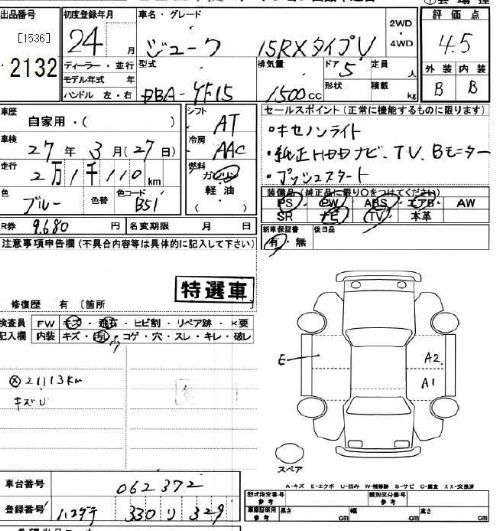 出品番号 初度登録年月 車名・グレード 2WD・4WD 評価点
[1536] 24 月 ジューク 15RXタイプV 4.5
2132 ディーラー・並行 型式 排気量 ドア 定員 人 外装 内装
モデル年式 年 DBA-YF15 1500cc 5 形状 積載 kg B B
ハンドル 左・右
車歴 自家用・( ) シフト AT セールスポイント (正常に機能するものに限ります)
車検 27年 3月 (27日) 冷房 AAC ・キセノンライト
走行 2万1千110km 燃料 ガソリン・軽油 ・純正HDDナビ、TV、Bモニター
・プッシュスタート
色 ブルー 色替 色コード B51 装備品 (純正品に限り〇をつけてください)
PS PW ABS エアB AW
SR ナビ TV 本革
R券 9,680 円 名変期限 月 日 新車保証書 有・無 後日品
注意事項申告欄 (不具合内容等は具体的に記入して下さい)
特選車
修復歴 有 〔箇所
検査員 FW キズ・飛石・ヒビ割・リペア跡・×要
記入欄 内装 キズ・汚レ・コゲ・穴・スレ・キレ・破レ
ⓧ21113km
キズU
E A2
A1
スペア
A-キズ E-エクボ U-凹み W-補修跡 S-サビ C-腐食 XX-交換済
車台番号 062372
登録番号 330 り 329
型式指定番号 参考 類別区分番号 参考
長さ cm 幅 cm 高さ cm